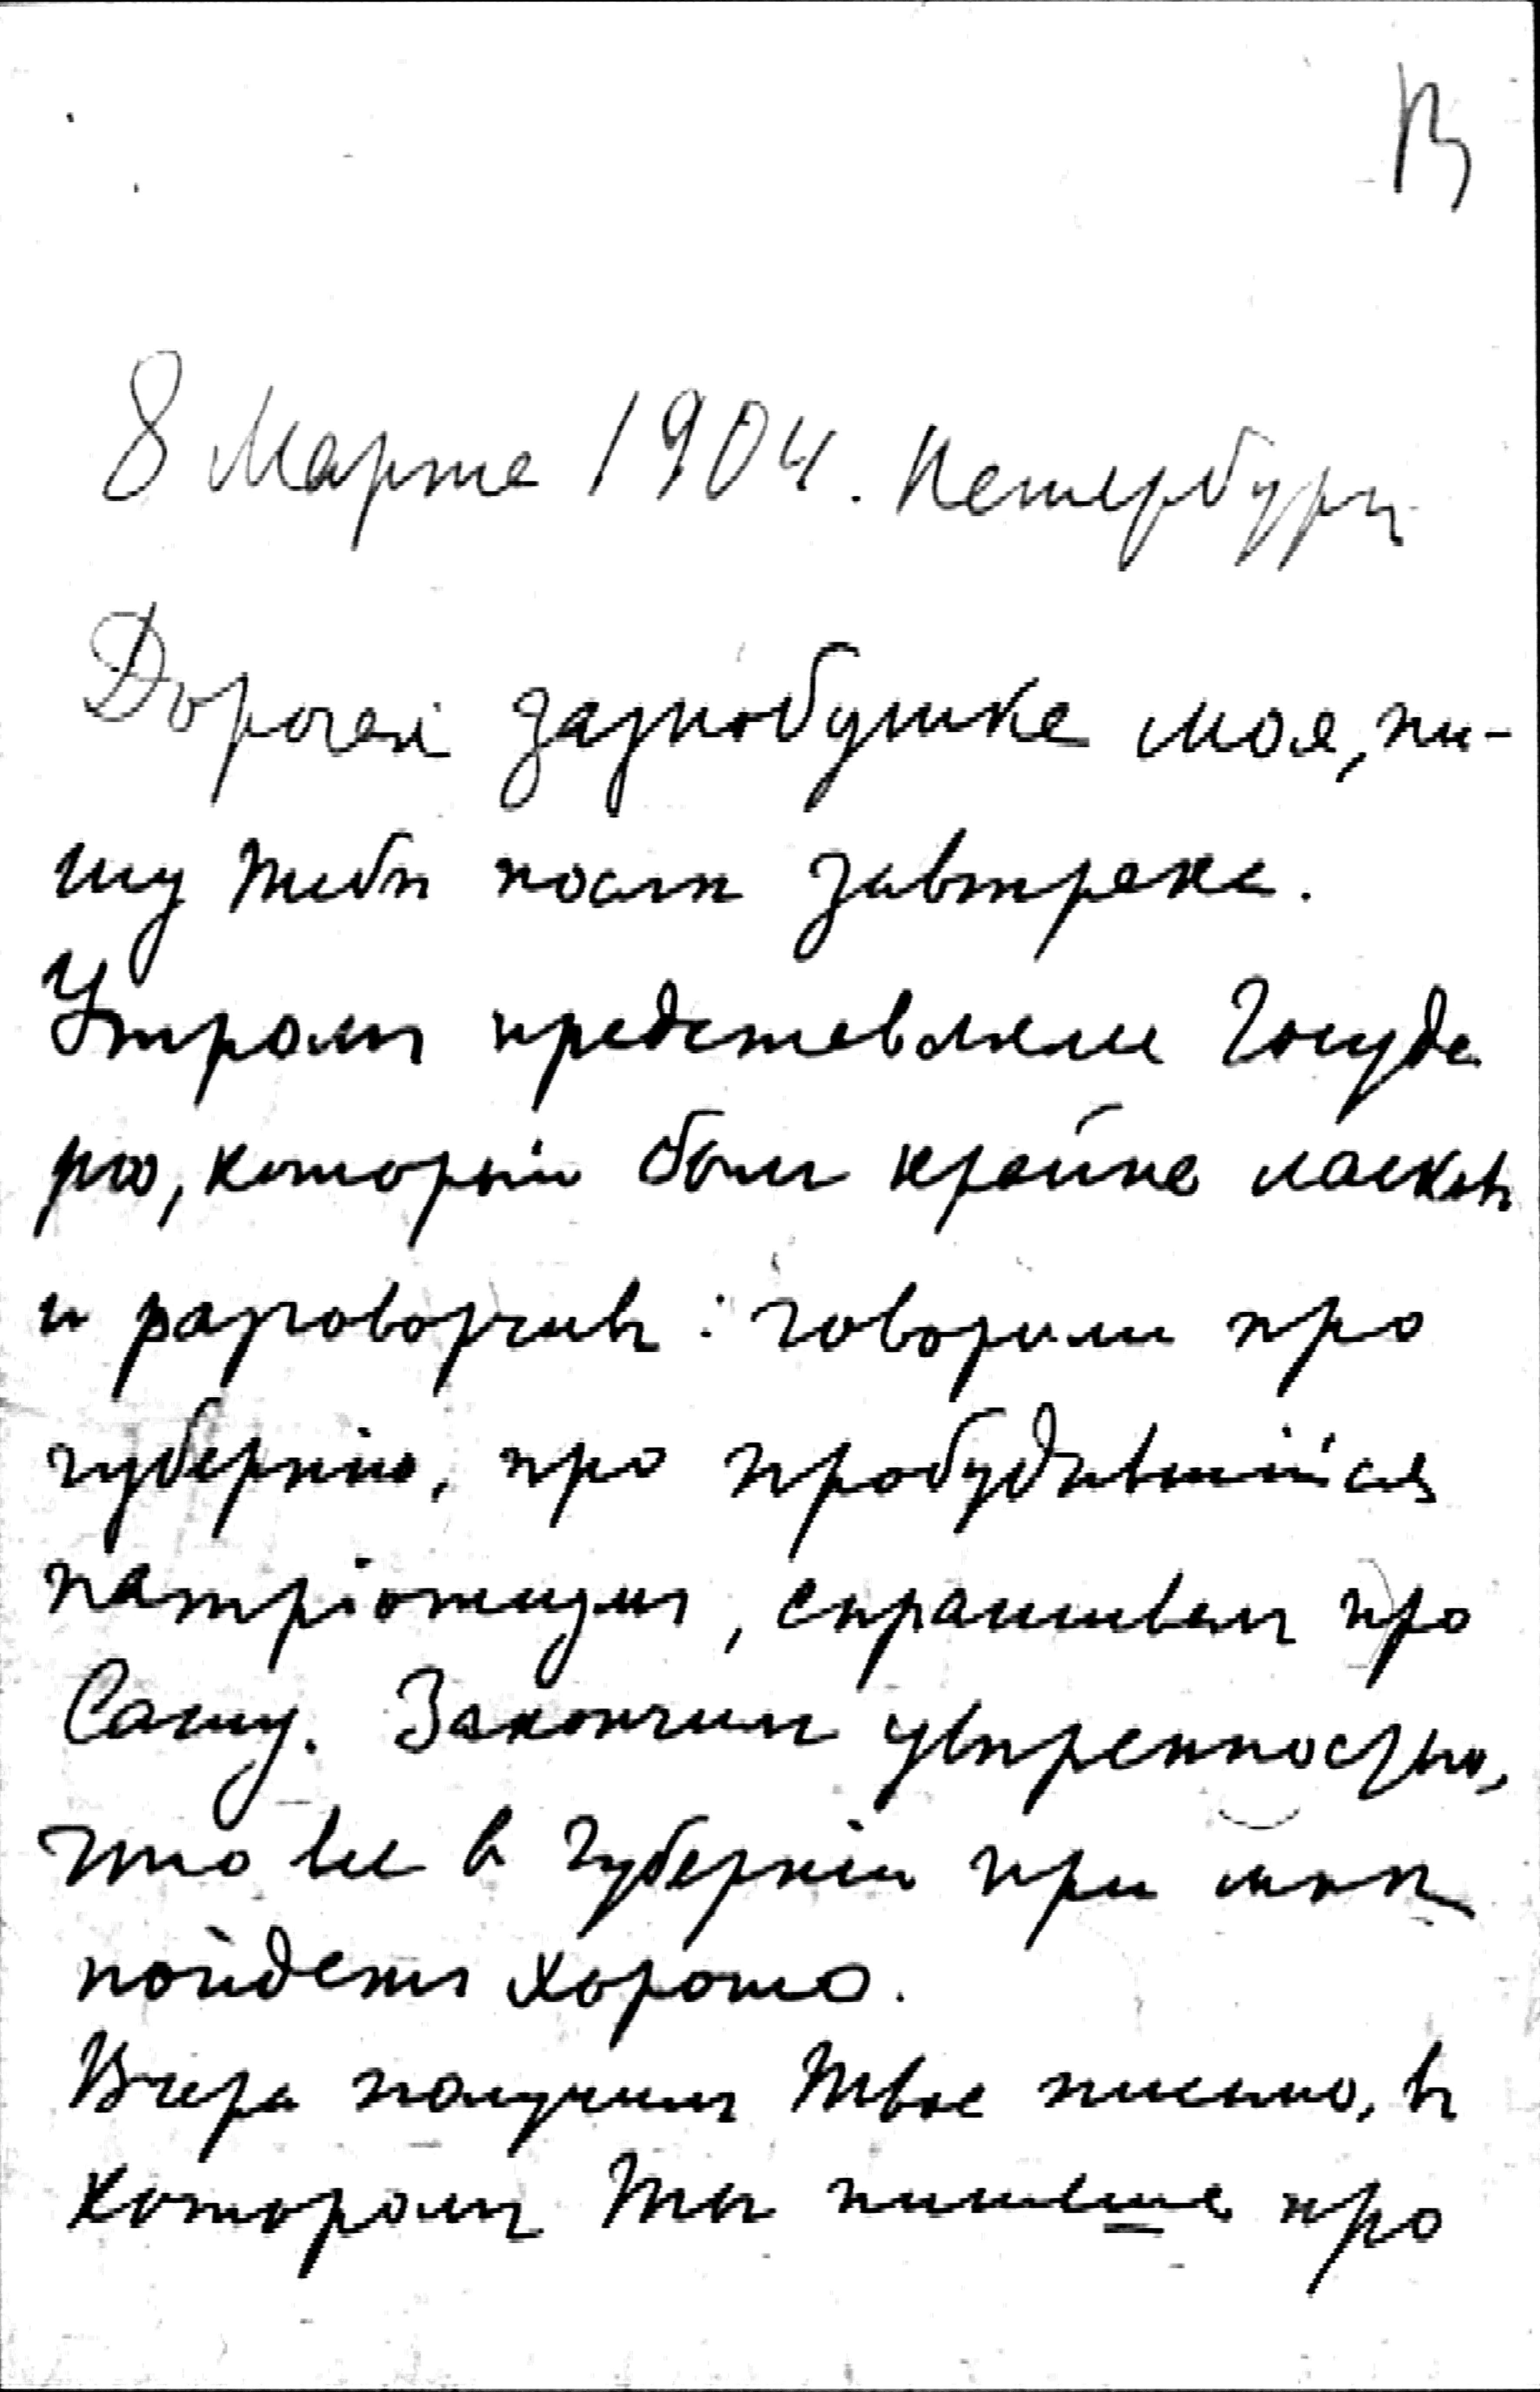 В
8 Марта 1904. Петербургъ
Дорогая зазнобушка моя, пи-
шу тебѣ послѣ завтрака.
Утромъ представлялся Госуда
рю, который былъ крайне ласковъ
и разговорчивъ: говорили про
губернію, про пробудившійся
патріотизмъ, спрашивалъ про
Сашу. Закончилъ увѣренностью,
что все въ губерніи при мнѣ
пойдетъ хорошо.
Вчера получилъ твое письмо, въ
которомъ ты пишешь про